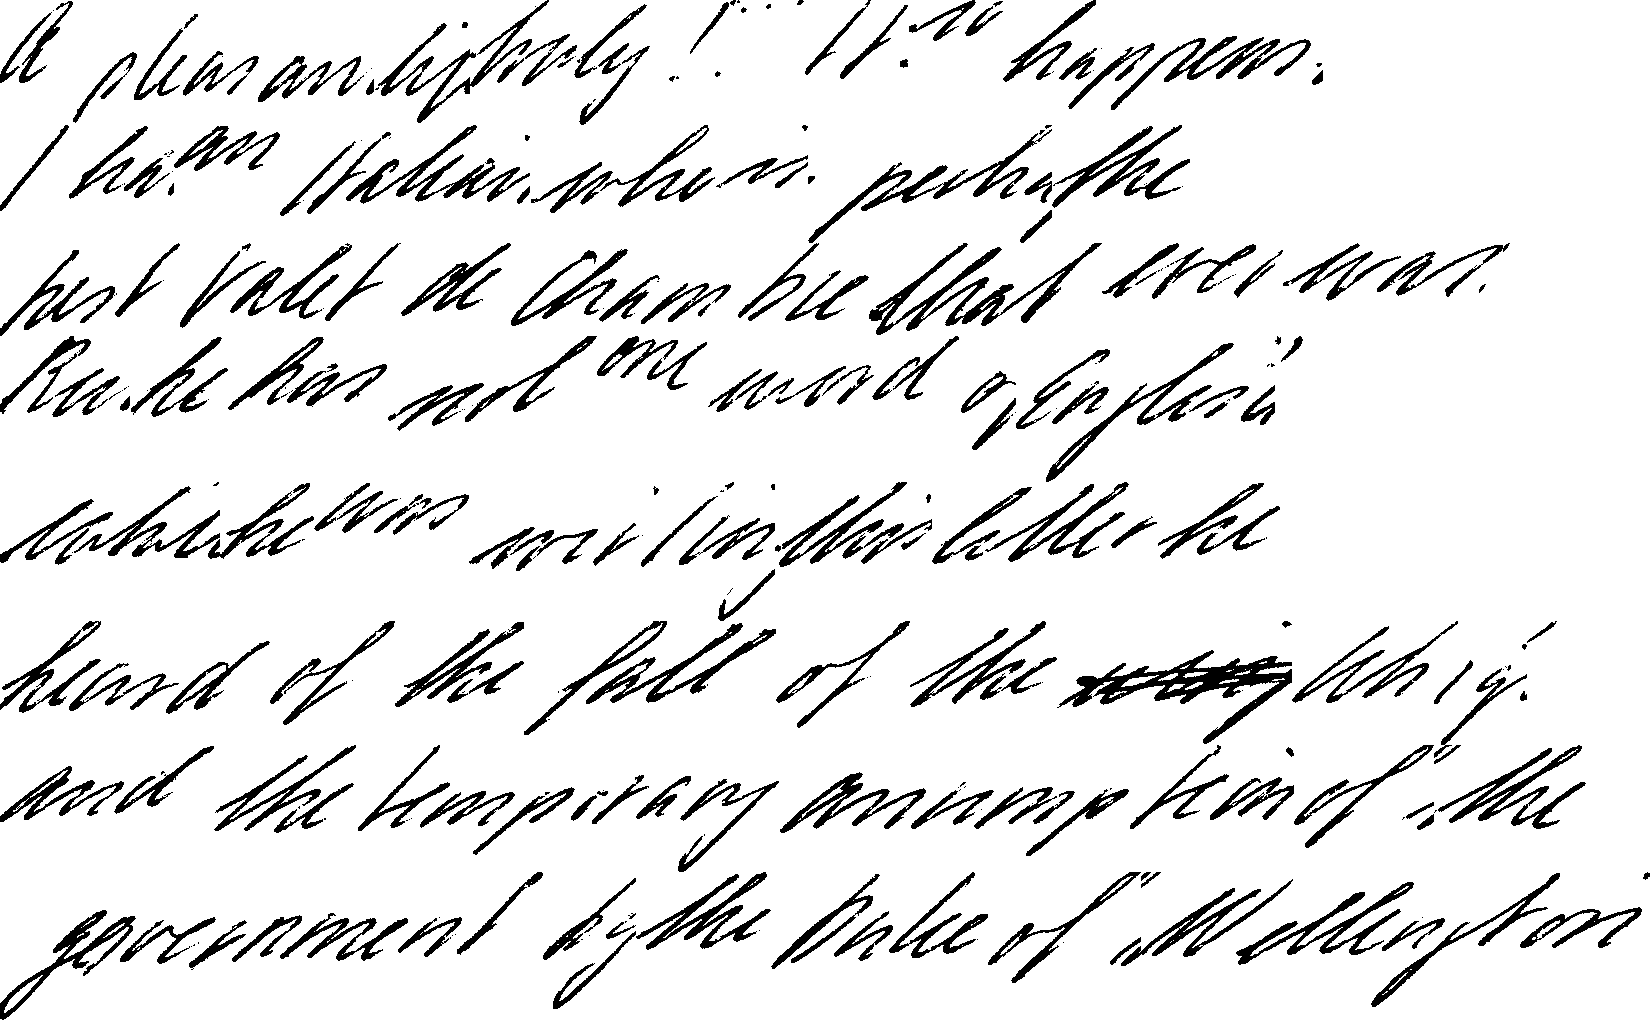 A pleasant body! It so happens.
I had an Italian who is perhaps the
best Valet de Chambre that ever was.
But he has not one word of English
he was writing this letter he
heard of the fall of the Whig
and the temporary assumption of the
government by the Duke of Wellington